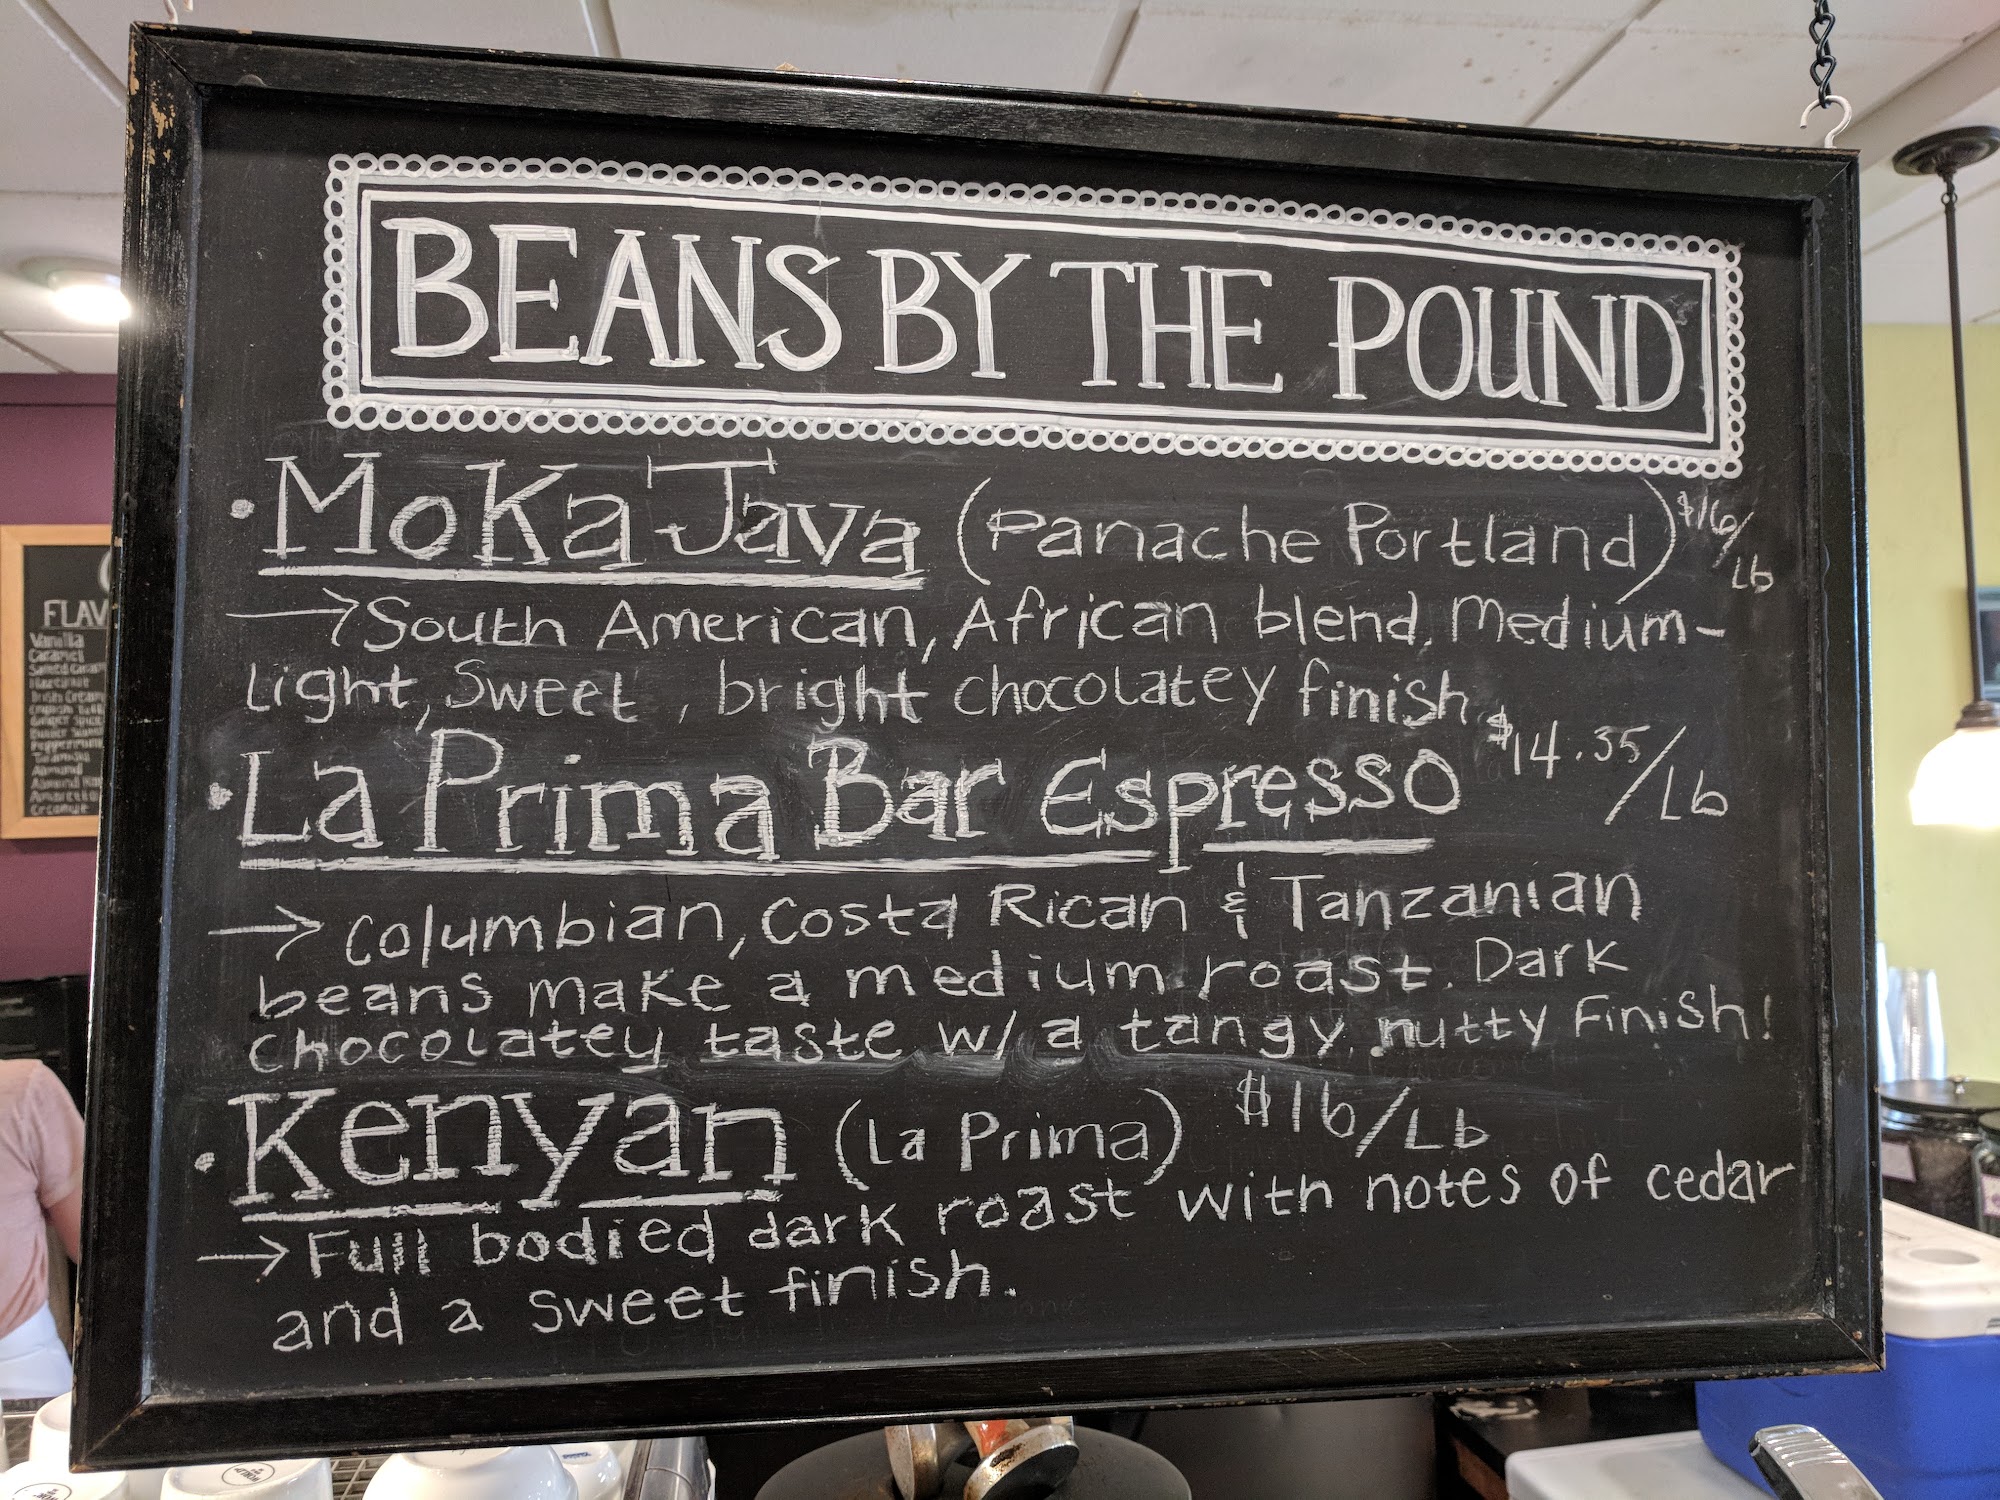 BEANS BY THE POUND
• Moka Java (Panache Portland) $16/Lb
→ South American, African blend, Medium-
Light, Sweet, bright chocolatey finish
• La Prima Bar Espresso $14.35/Lb
→ Columbian, Costa Rican & Tanzanian
beans make a medium roast. Dark
chocolatey taste w/ a tangy, nutty Finish!
• Kenyan (La Prima) $16/Lb
→ Full bodied dark roast with notes of cedar
and a sweet finish.
FLAV
Vanilla
Caramel
Salted Caram
Hazelnut
Irish Cream
Peppermint
Tiramisu
Almond
Almond Ro
Amaretto
Coconut